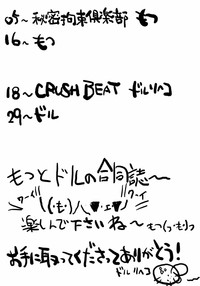 05~秘密拘束倶楽部 もつ
16~もつ
18~CRUSH BEAT ドルリヘコ
29~ドル
もつとドルの合同誌~
ワーイ (・ω・)人(▼ェ▼) ワーイ
楽しんで下さいね~もつ(っ・ω・)っ
お手に取ってくださってありがとう!
ドルリヘコ